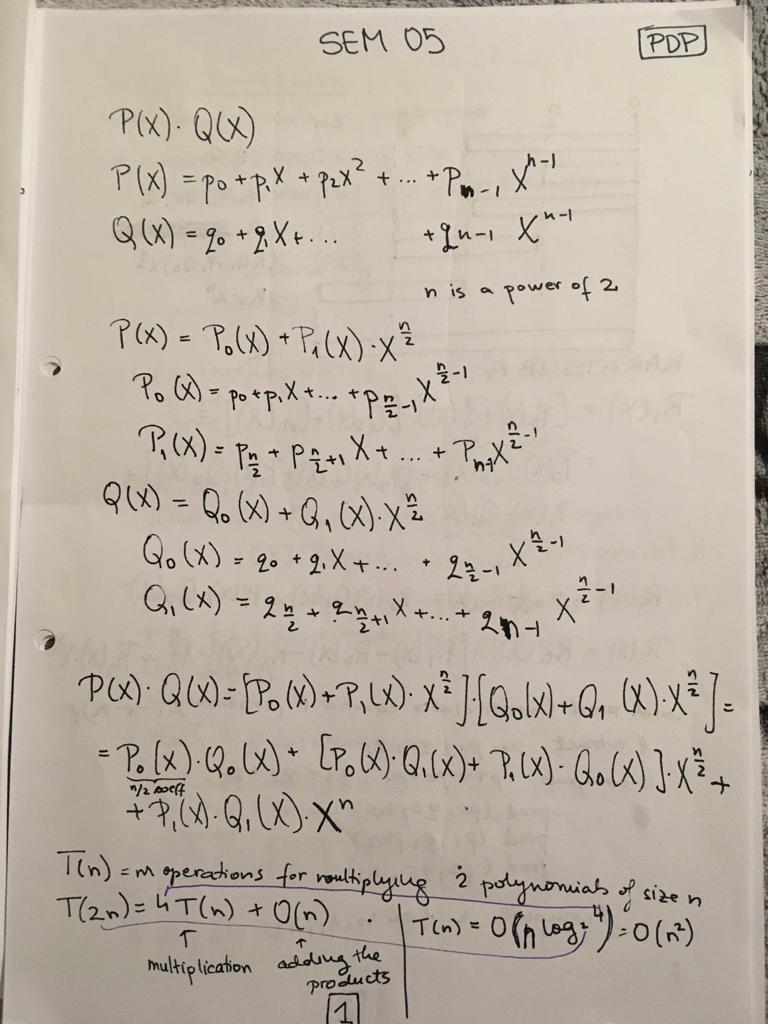 SEM 05
PDP
P(X) · Q(X)
P(X) = p₀ + p₁X + p₂X² + ... + pₙ₋₁ Xⁿ⁻¹
Q(X) = q₀ + q₁X + ... + qₙ₋₁ Xⁿ⁻¹
n is a power of 2
P(X) = P₀(X) + P₁(X) · X^(n/2)
P₀(X) = p₀ + p₁X + ... + p_(n/2 - 1) X^(n/2 - 1)
P₁(X) = p_(n/2) + p_(n/2 + 1) X + ... + pₙ₋₁ X^(n/2 - 1)
Q(X) = Q₀(X) + Q₁(X) · X^(n/2)
Q₀(X) = q₀ + q₁X + ... + q_(n/2 - 1) X^(n/2 - 1)
Q₁(X) = q_(n/2) + q_(n/2 + 1) X + ... + qₙ₋₁ X^(n/2 - 1)
P(X) · Q(X) = [P₀(X) + P₁(X) · X^(n/2)] · [Q₀(X) + Q₁(X) · X^(n/2)] =
= P₀(X) · Q₀(X) + [P₀(X) · Q₁(X) + P₁(X) · Q₀(X)] · X^(n/2) +
n/2 coeff
+ P₁(X) · Q₁(X) · Xⁿ
T(n) = m operations for multiplying 2 polynomials of size n
T(2n) = 4 T(n) + O(n) .
↑ multiplication
↑ adding the
products
T(n) = O(n^(log₂ 4)) = O(n²)
1